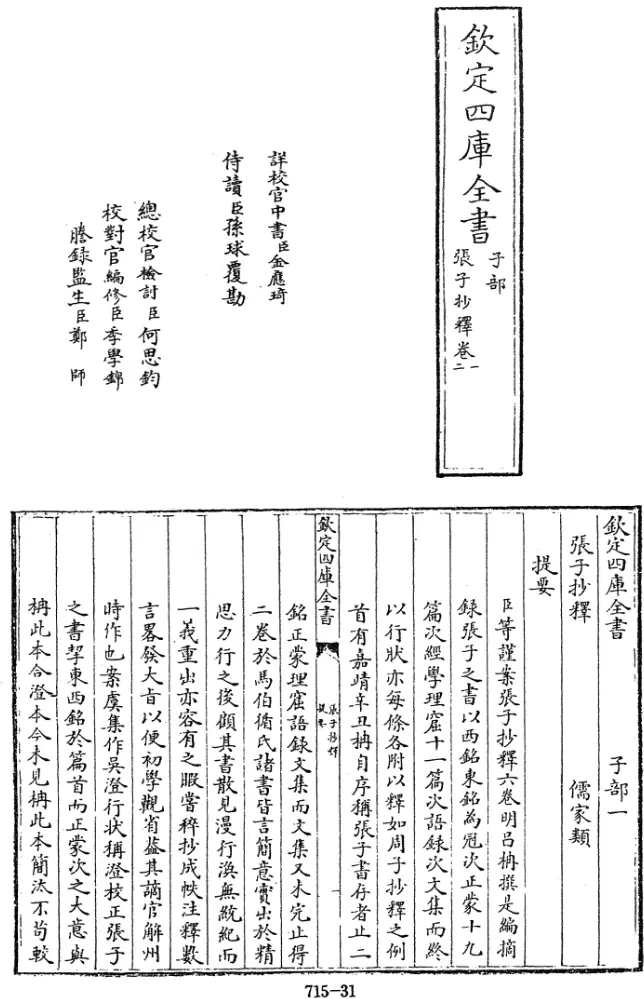 欽定四庫全書
子部
張子抄釋卷一
二
詳校官中書臣金應琦
侍讀臣孫球覆勘
總校官檢討臣何思鈞
校對官編修臣季學錦
謄錄監生臣鄭師
欽定四庫全書
子部一
張子抄釋
儒家類
提要
臣等謹案張子抄釋六卷明呂柟撰是編摘
録張子之書以西銘東銘為冠次正蒙十九
篇次經學理窟十一篇次語録次文集而終
以行狀亦每條各附以釋如周子抄釋之例
首有嘉靖辛丑柟自序稱張子書存者止二
欽定四庫全書
張子抄釋
提要
銘正蒙理窟語録文集而文集又未完止得
二卷於馬伯循氏諸書皆言簡意實出於精
思力行之後顧其書散見漫行渙無統紀而
一義重出亦容有之暇嘗稡抄成帙注釋數
言畧發大旨以便初學觀省葢其謫官解州
時作也案虞集作吳澄行狀稱澄校正張子
之書挈東西銘於篇首而正蒙次之大意與
柟此本合澄本今未見柟此本簡汰不苟較
715-31